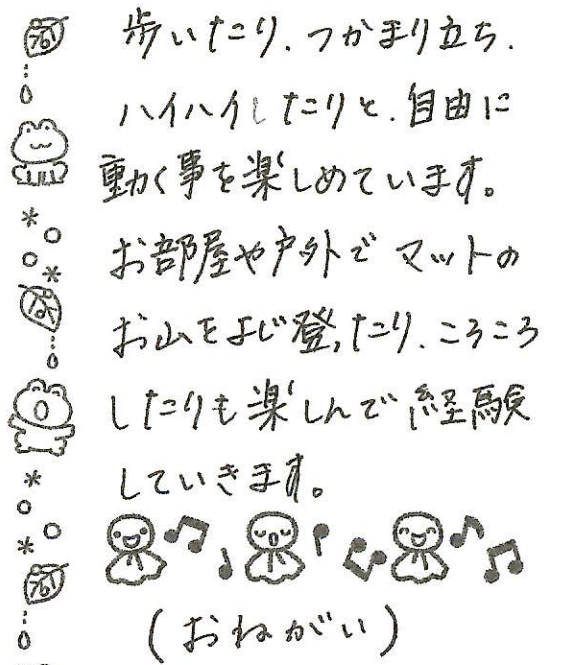 歩いたり、つかまり立ち、
ハイハイしたりと、自由に
動く事を楽しめています。
お部屋や戸外でマットの
お山をよじ登ったり、ころころ
したりも楽しんで経験
していきます。
(おねがい)